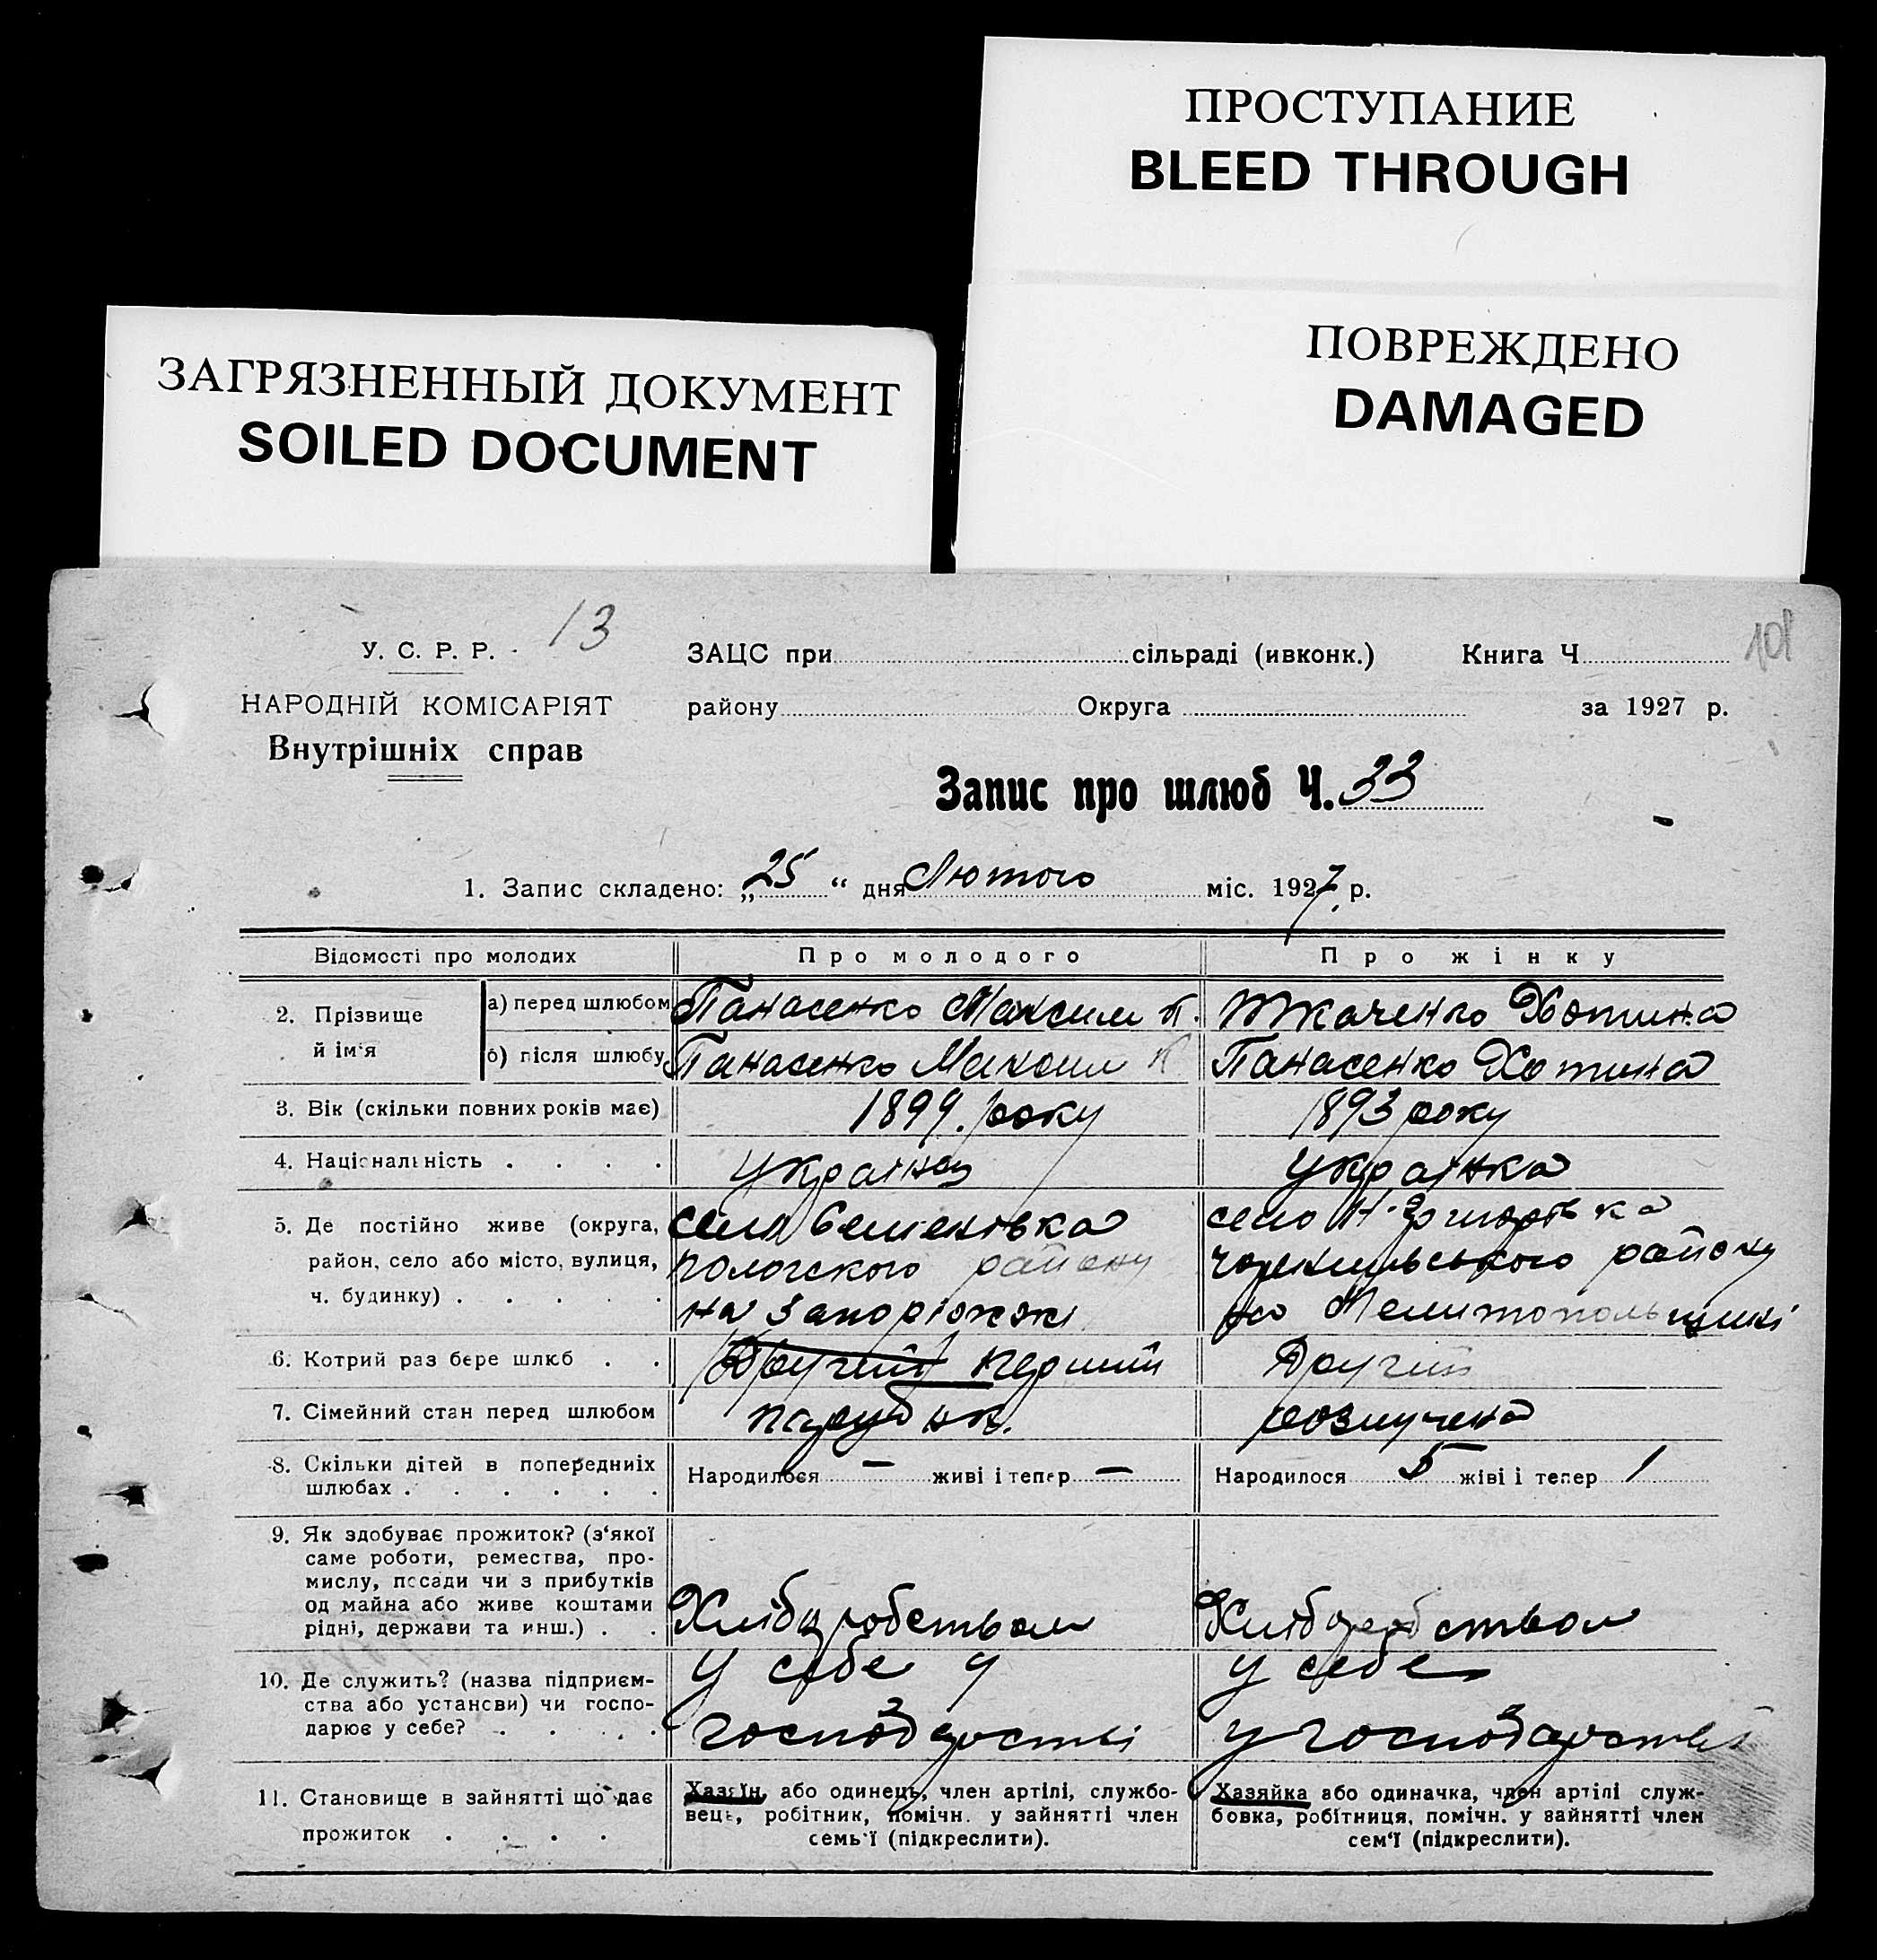 ПРОСТУПАНИЕ
BLEED THROUGH
ПОВРЕЖДЕНО
DAMAGED
ЗАГРЯЗНЕННЫЙ ДОКУМЕНТ
SOILED DOCUMENT
У. С. Р. Р. 13
ЗАЦС при сільраді (ивконк.) Книга Ч 108
НАРОДНІЙ КОМІСАРІЯТ
району Округа за 1927 р.
Внутрішніх справ
Запис про шлюб Ч. 33
1. Запис складено: „25“ дня Лютого міс. 1927 р.
Відомості про молодих Про молодого Про жінку
2. Прізвище й ім'я
а) перед шлюбом Панасенко Максим П. Ткаченко Хотина
б) після шлюбу Панасенко Максим П Панасенко Хотина
3. Вік (скільки повних років має) 1899. року 1893 року
4. Національність . . . . українец українка
5. Де постійно живе (округа, район, село або місто, вулиця, ч. будинку) . . . . .
село Семенівка
пологского району
на Запоріжжі
село Н.
району
на Мелитопольщині
6. Котрий раз бере шлюб . . Другий перший Другий
7. Сімейний стан перед шлюбом парубок. розлучена
8. Скільки дітей в попередниіх шлюбах . . . . . .
Народилося — живі і тепер —
Народилося 5 жіві і тепер 1
9. Як здобуває прожиток? (з'якої
саме роботи, ремества, про-
мислу, посади чи з прибутків
од майна або живе коштами
рідні, держави та инш.) . .
Хліборобством Хліборобством
10. Де служить? (назва підприєм-
ства або установи) чи госпо-
дарює у себе? . . . . .
у себе у
господарстві
у себе
у господарстві
11. Становище в зайнятті що дає
прожиток . . . .
Хазяїн, або одинець, член артілі, службо-
вець, робітник, помічн. у зайнятті член
семь'ї (підкреслити).
Хазяйка або одиначка, член артілі служ-
бовка, робітниця, помічн. у зайнятті член
сем'ї (підкреслити).